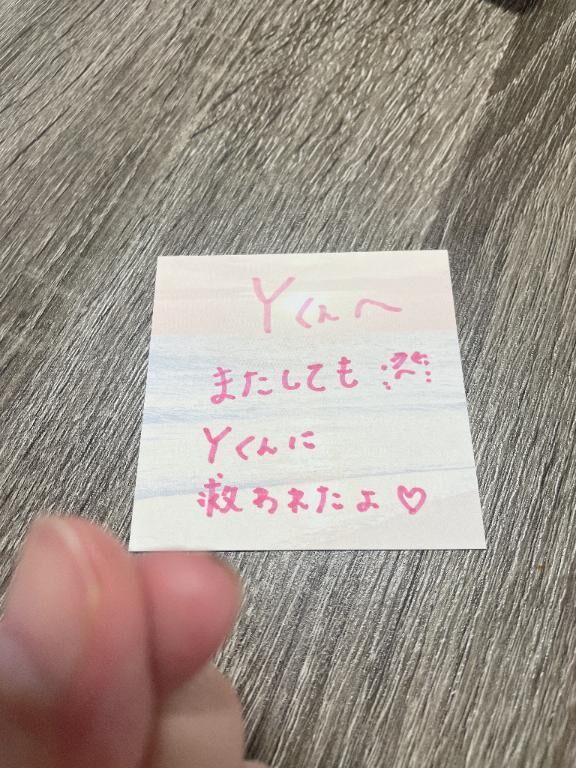 Yくんへ
またしても
Yくんに
救われたよ♡